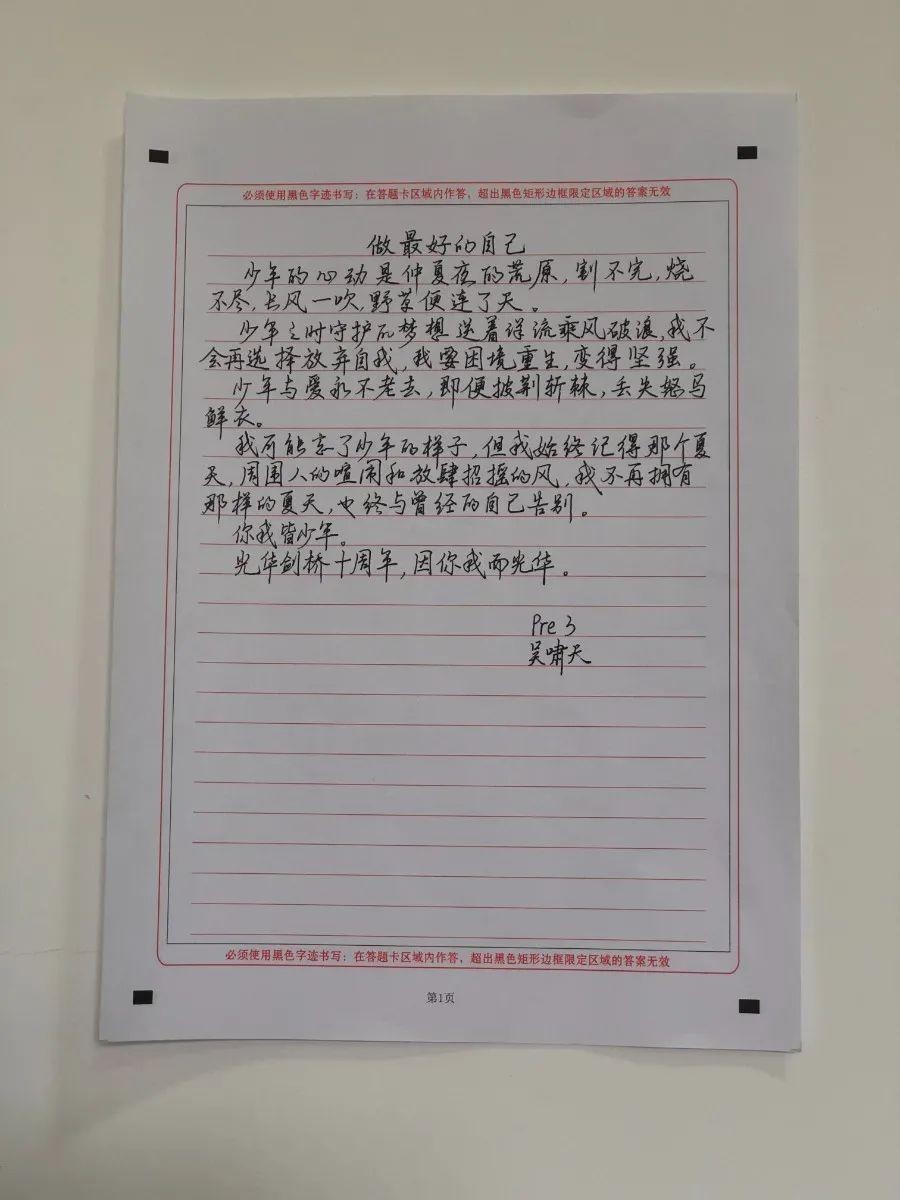 必须使用黑色字迹书写；在答题卡区域内作答，超出黑色矩形边框限定区域的答案无效
做最好的自己
少年的心动是仲夏夜的荒原，割不完，烧
不尽，长风一吹，野草便连了天。
少年之时守护的梦想送着洋流乘风破浪，我不
会再选择放弃自我，我要困境重生，变得坚强。
少年与爱永不老去，即便披荆斩棘，丢失怒马
鲜衣。
我可能忘了少年的样子，但我始终记得那个夏
天，周围人的喧闹和放肆招摇的风，我不再拥有
那样的夏天，也终与曾经的自己告别。
你我皆少年。
光华剑桥十周年，因你我而光华。
Pre 3
吴啸天
必须使用黑色字迹书写；在答题卡区域内作答，超出黑色矩形边框限定区域的答案无效
第1页